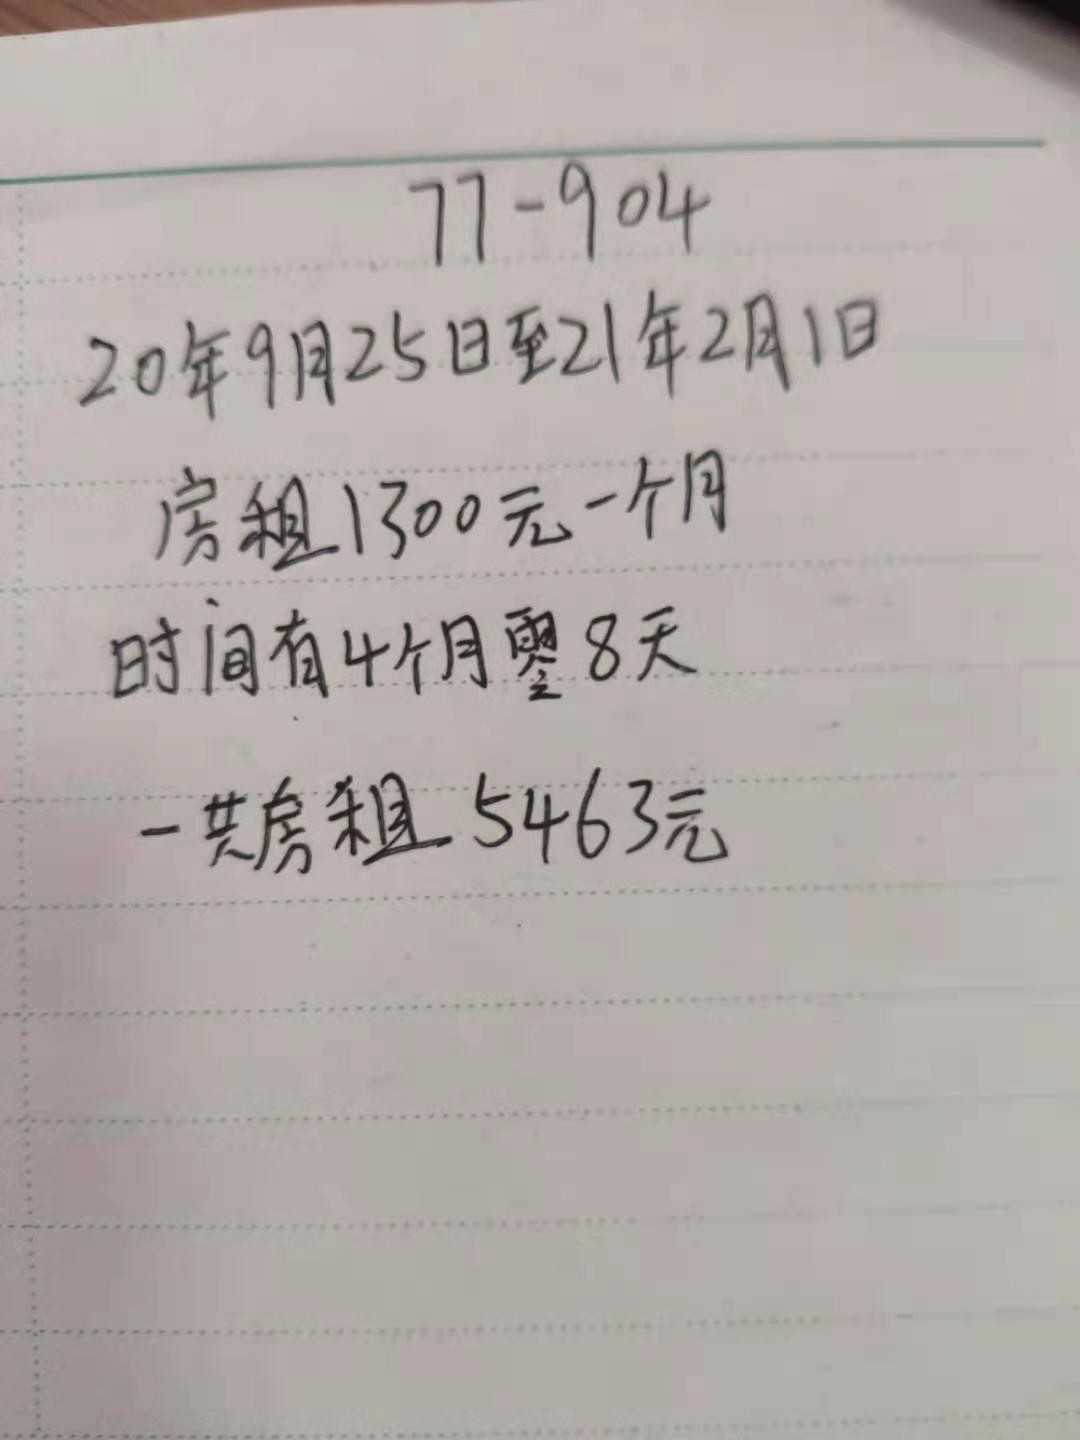 77-904
20年9月25日至21年2月1日
房租1300元一个月
时间有4个月零8天
一共房租5463元